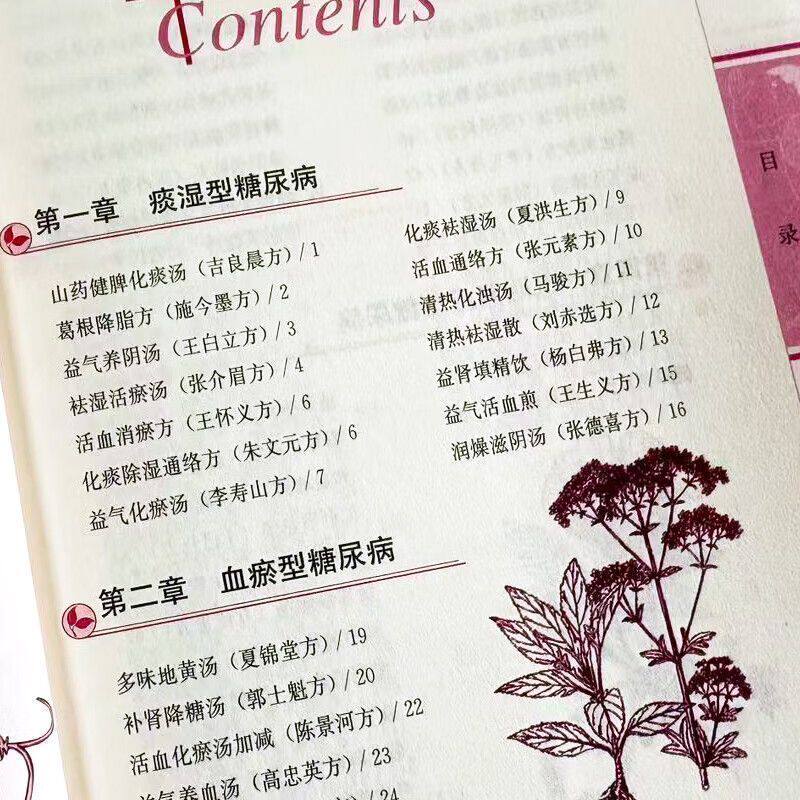 Contents
目
录
第一章 痰湿型糖尿病
山药健脾化痰汤（吉良晨方）/ 1
葛根降脂方（施今墨方）/ 2
益气养阴汤（王白立方）/ 3
祛湿活瘀汤（张介眉方）/ 4
活血消瘀方（王怀义方）/ 6
化痰除湿通络方（朱文元方）/ 6
益气化瘀汤（李寿山方）/ 7
化痰祛湿汤（夏洪生方）/ 9
活血通络方（张元素方）/ 10
清热化浊汤（马骏方）/ 11
清热祛湿散（刘赤选方）/ 12
益肾填精饮（杨白弗方）/ 13
益气活血煎（王生义方）/ 15
润燥滋阴汤（张德喜方）/ 16
第二章 血瘀型糖尿病
多味地黄汤（夏锦堂方）/ 19
补肾降糖汤（郭士魁方）/ 20
活血化瘀汤加减（陈景河方）/ 22
益气养血汤（高忠英方）/ 23
/ 24